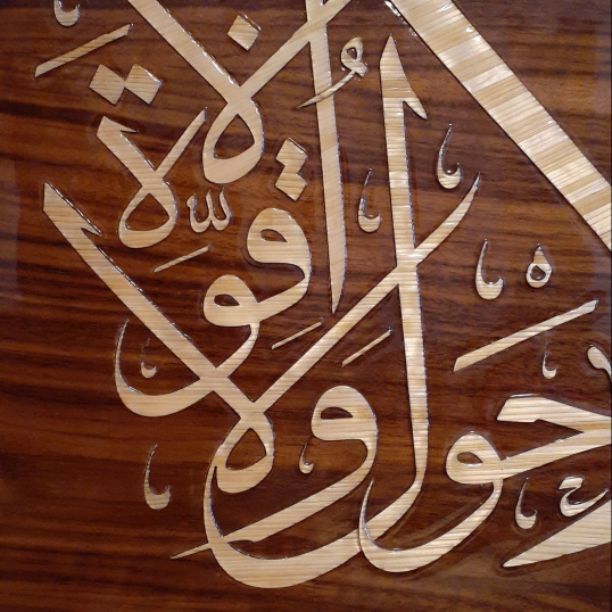 حول ولا قوة إلا